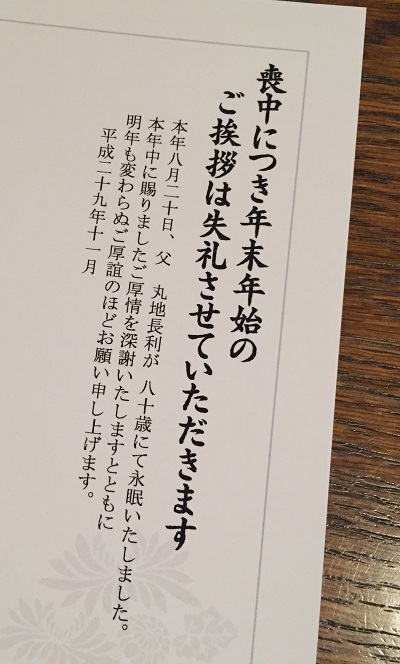 喪中につき年末年始の
ご挨拶は失礼させていただきます
本年八月二十日、父　丸地長利が　八十歳にて永眠いたしました。
本年中に賜りましたご厚情を深謝いたしますとともに
明年も変わらぬご厚誼のほどお願い申し上げます。
平成二十九年十一月